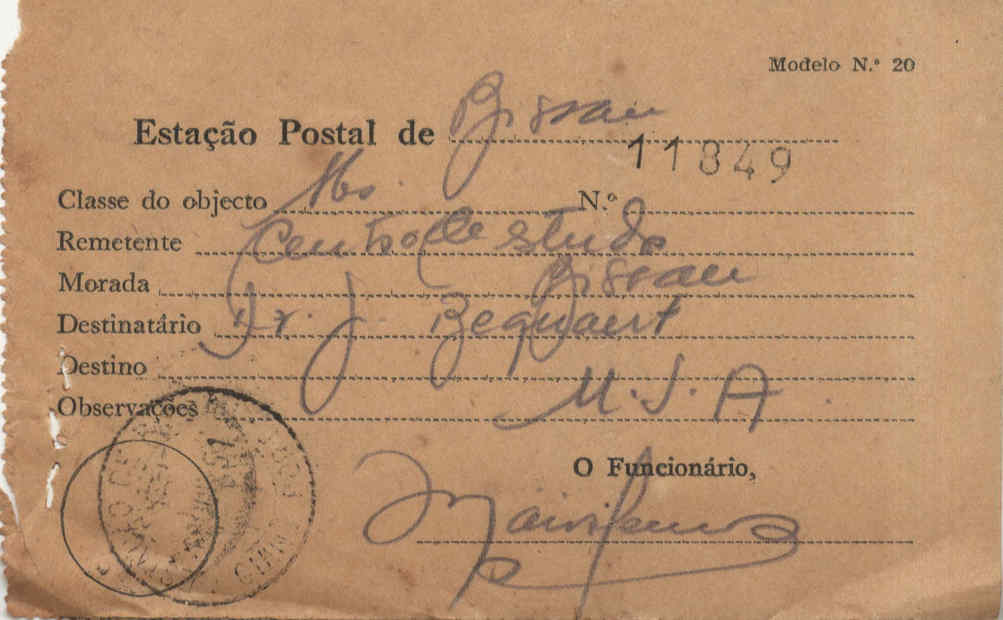 Modelo N.º 20
Estação Postal de Bissau
11849
Classe do objecto N.º
Remetente Centro de Estudos
Morada Bissau
Destinatário Dr. J. Bequaert
Destino U.S.A.
Observações
O Funcionário,